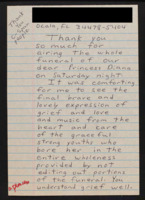 Ocala, FL 34478-5404
Thank you
so much for
airing the whole
funeral of our
dear Princess Diana
on Saturday night.
It was comforting
for me to see the
final brave and
lovely expression of
grief and love
and music from the
heart and
of the graceful
strong youths who
bore her in the
entire wholeness
provided by not
editing out portions
of the funeral. You
understand grief well.